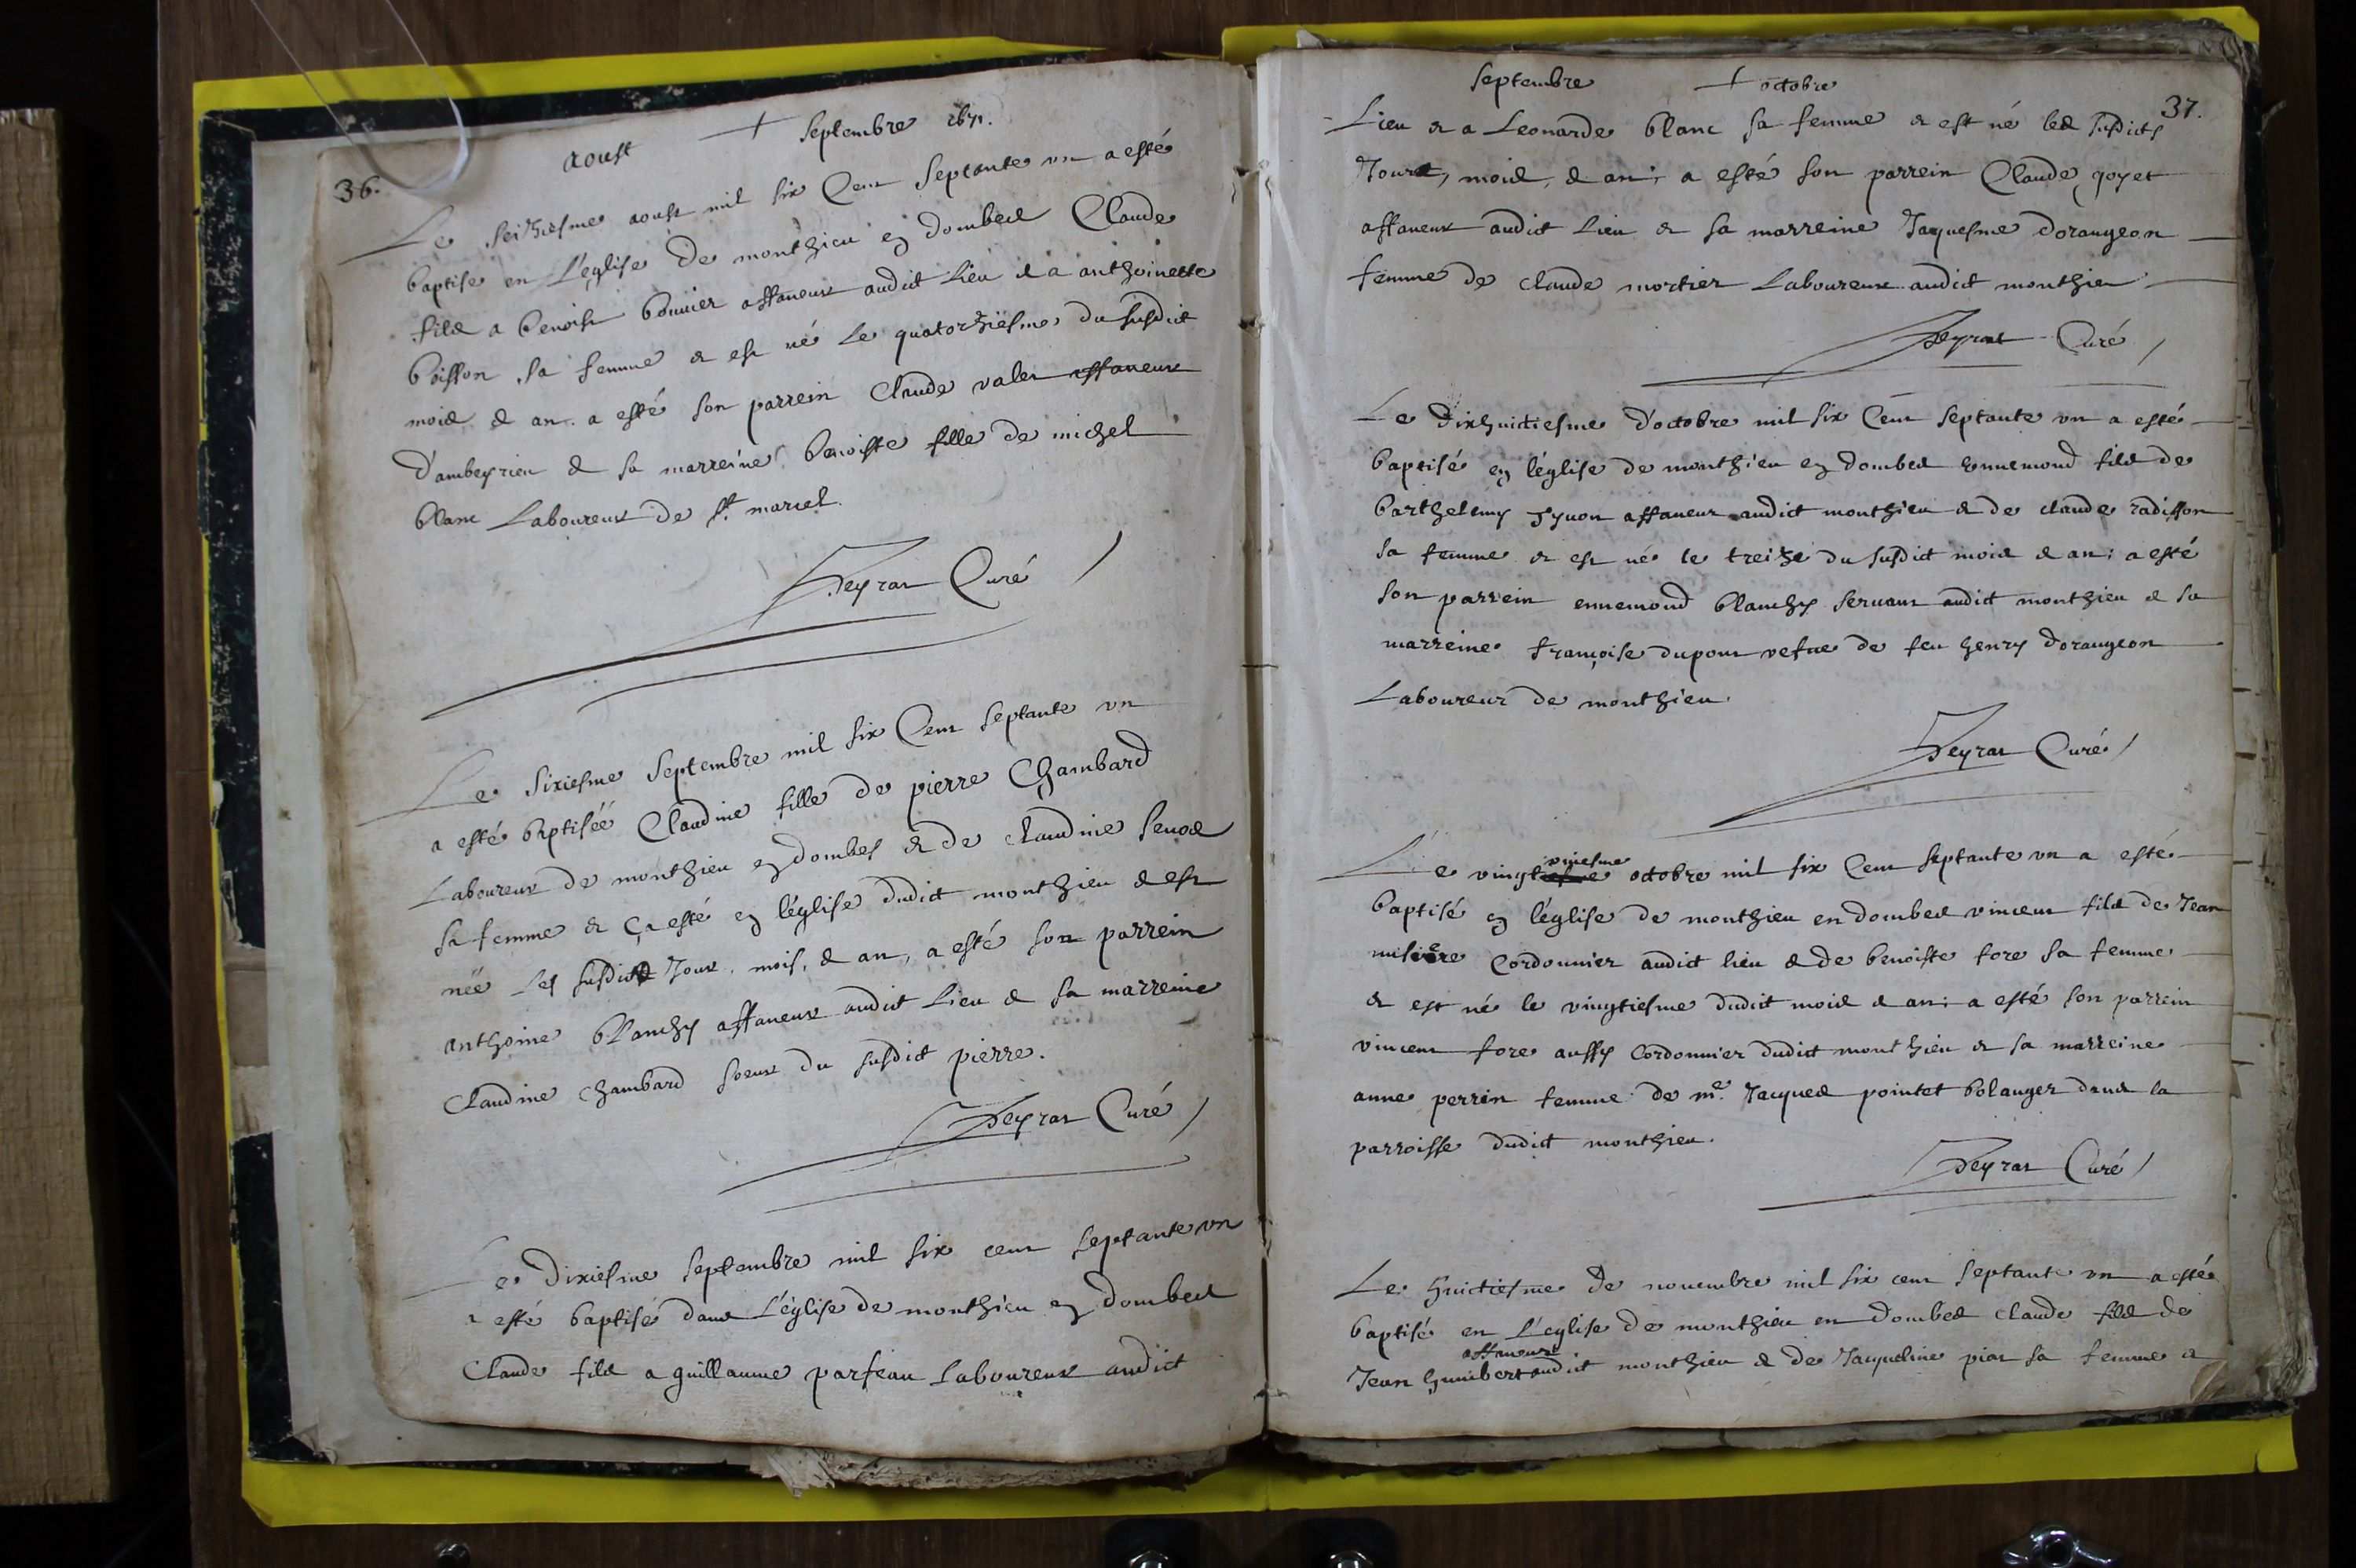 36.
aoust + septembre 1671.
Le seiziesme aoust mil six Cent Septante vn a esté
baptise en L'église de monthieu en dombes Claude
fils a benoist bouuier affaneur audict Lieu & a anthoinette
boisson sa femme & est né Le quatorziesme du susdict
mois & an. a esté son parrein Claude valer affaneur
d'ambeyrieu & sa marreine benoiste fille de michel
blanc Laboureur de st marcel.
Curé
Le Sixiesme Septembre mil six Cent septante vn
a esté baptiséé Claudine fille de pierre Chambard
Laboureur de monthieu en dombes & de claudine
sa femme & ça esté en léglise dudict monthieu & est
néë Les susdicts Jour, mois, & an, a esté son parrein
anthoine blanchy affaneur audict Lieu & sa marreine
Claudine chambard soeur du susdict pierre.
Curé
Le dixiesme septembre mil six cent septante vn
a esté baptisé dans L'église de monthieu en dombes
Claude fils a guillaume parseau Laboureur audict
septembre + octobre
37.
Lieu & a Leonarde blanc sa femme & est né les susdicts
Jours, mois, & an; a esté son parrein Claude goyet
affaneur audict Lieu & sa marreine Jaquesme dorangeon
femme de claude mortier Laboureur audict monthieu
Curé
Le dixhuictiesme d'octobre mil six Cent septante vn a esté
baptisé en léglise de monthieu en dombes ennemond fils de
barthelemy affaneur audict monthieu & de claude radisson
sa femme & est né le treize du susdict mois & an; a esté
son parrein ennemond blanchy seruant audict monthieu & sa
marreine françoise dupont vefue de feu henry dorangeon
Laboureur de monthieu.
Curé
vniesme
Le vingt octobre mil six Cent septante vn a esté
baptisé en léglise de monthieu en dombes vincent fils de Jean
misiere Cordonnier audict lieu & de benoiste fore sa femme
& est né le vingtiesme dudict mois & an; a esté son parrein
vincent fore aussy Cordonnier dudict monthieu & sa marreine
anne perrin femme de me. Jacques pointet bolanger dans la
parroisse dudict monthieu.
Curé
Le huictiesme de nouembre mil six cent septante vn a esté
baptisé en L'eglise de monthieu en dombes claude fils de
affaneur
Jean humbert audict monthieu & de Jaqueline piar sa femme &